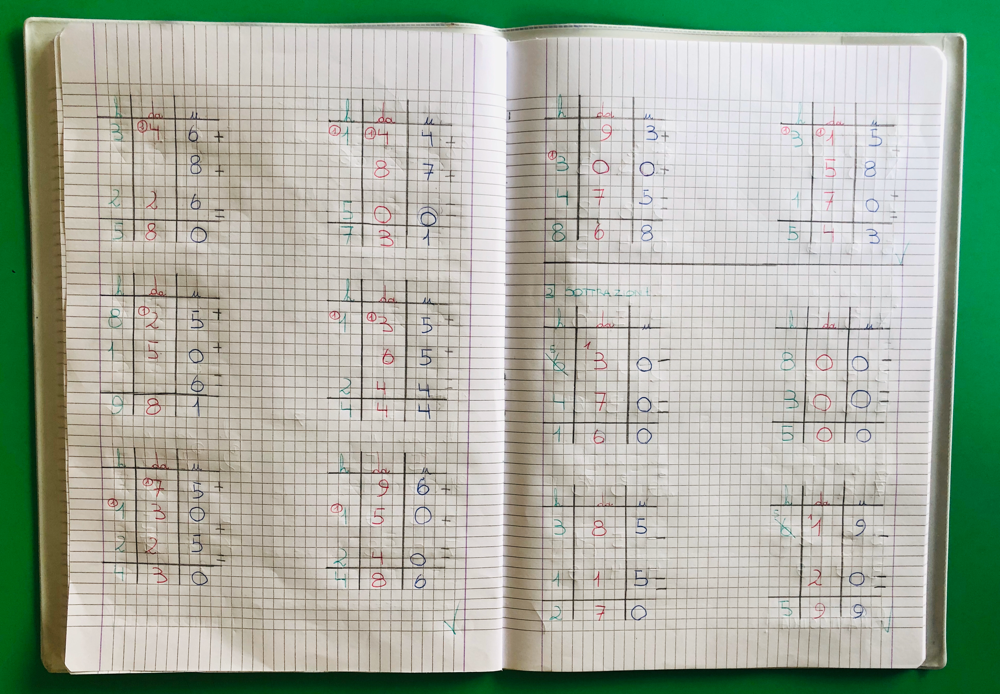 h da u
3 ①4 6 +
8 +
2 2 6 =
5 8 0
h da u
①1 ①4 4 +
8 7 +
5 0 0 =
7 3 1
h da u
8 ①2 5 +
1 5 0 +
6 =
9 8 1
h da u
①1 ①3 5 +
6 5 +
2 4 4 =
4 4 4
h da u
①7 5 +
①1 3 0 +
2 2 5 =
4 3 0
h da u
9 6 +
①1 5 0 +
2 4 0 =
4 8 6
h da u
9 3 +
①3 0 0 +
4 7 5 =
8 6 8
h da u
①3 ①1 5 +
5 8 +
1 7 0 =
5 4 3
2 SOTTRAZIONI.
h da u
5 6 1 3 0 -
4 7 0 =
1 6 0
h da u
8 0 0 -
3 0 0 =
5 0 0
h da u
3 8 5 -
1 1 5 =
2 7 0
h da u
5 6 1 1 9 -
2 0 =
5 9 9